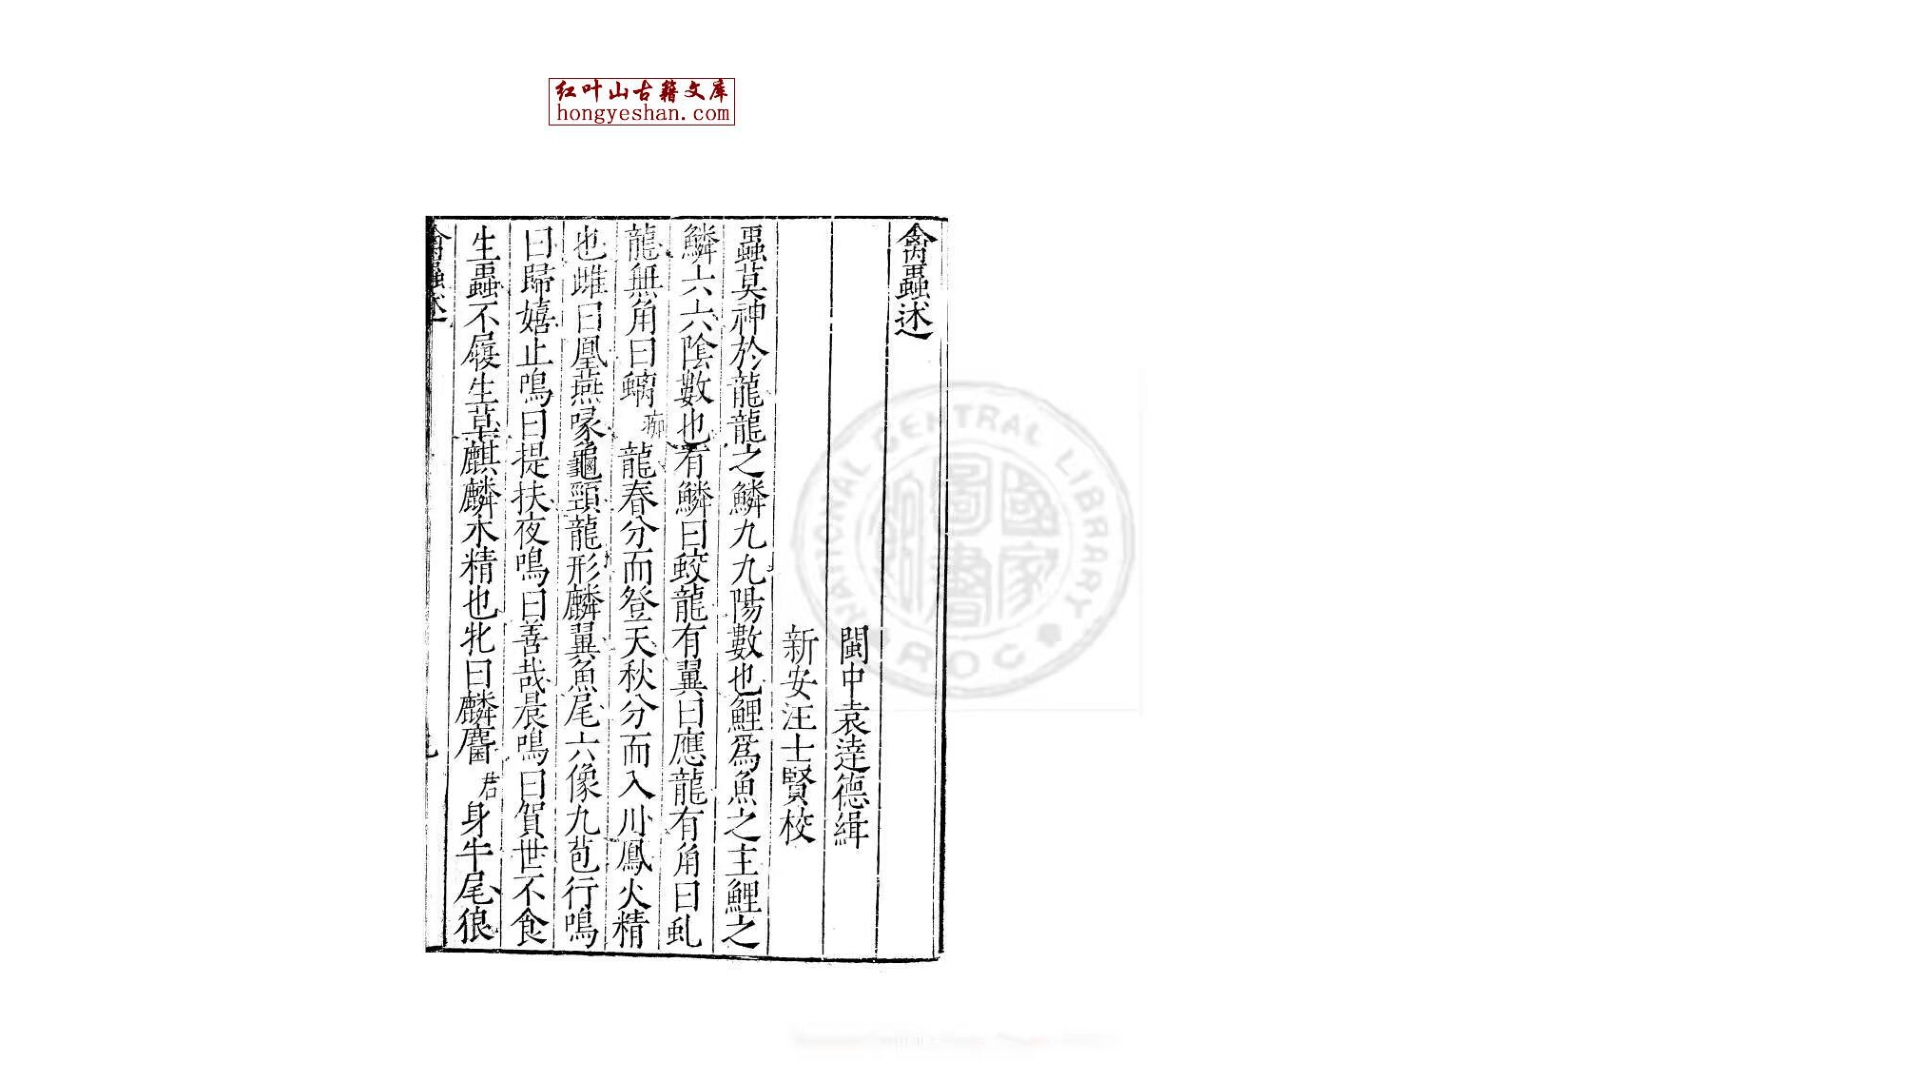 红叶山古籍文库
hongyeshan.com
禽蟲述
閩中袁達德緝
新安汪士賢校
蟲莫神於龍龍之鱗九九陽數也鯉爲魚之主鯉之
鱗六六陰數也有鱗曰蛟龍有翼曰應龍有角曰虬
龍無角曰螭 龍春分而登天秋分而入川鳳火精
也雌曰凰燕喙龜頸龍形麟翼魚尾六像九苞行鳴
曰歸嬉止鳴曰提扶夜鳴曰善哉晨鳴曰賀世不食
生蟲不履生草麒麟木精也牝曰麟麕君身牛尾狼
禽蟲述
NATIONAL CENTRAL LIBRARY
ROC
國家圖書